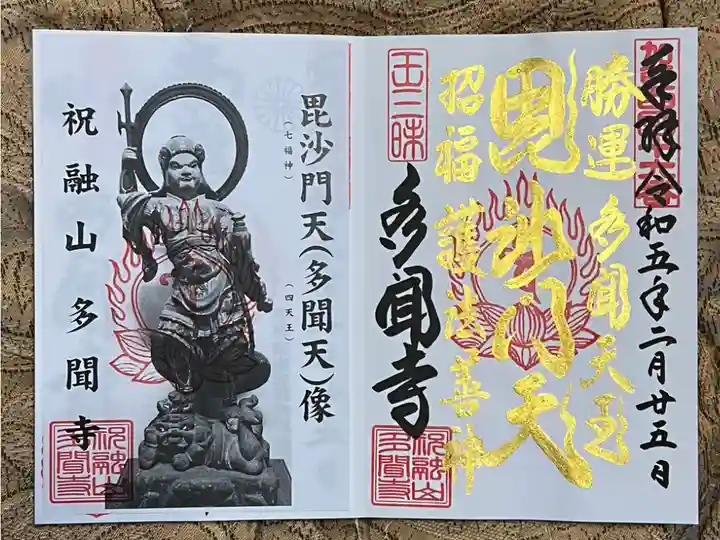 奉拝 令和五年二月廿五日
勝運 多聞天王
毘沙門天
招福 護法善神
玉三昧
多聞寺
祝融山
多聞寺
毘沙門天(多聞天)像
(七福神)
(四天王)
祝融山 多聞寺
祝融山
多聞寺